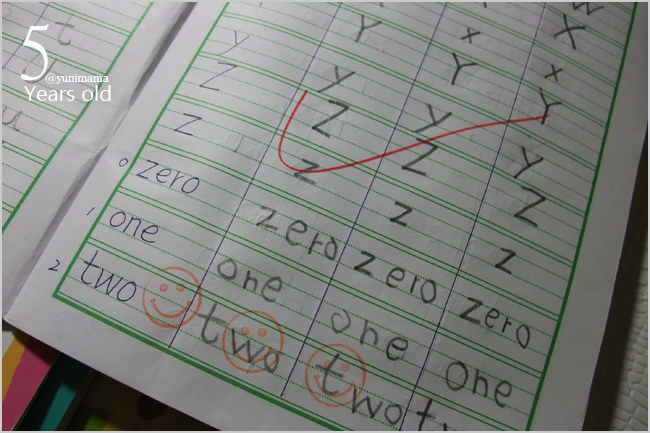 5
@yunimania
Years old
t
u
X
x x
Y Y Y
y y y y
Z Z Z Z
z z z z
0 zero zero zero zero
1 one one one one
2 two two two